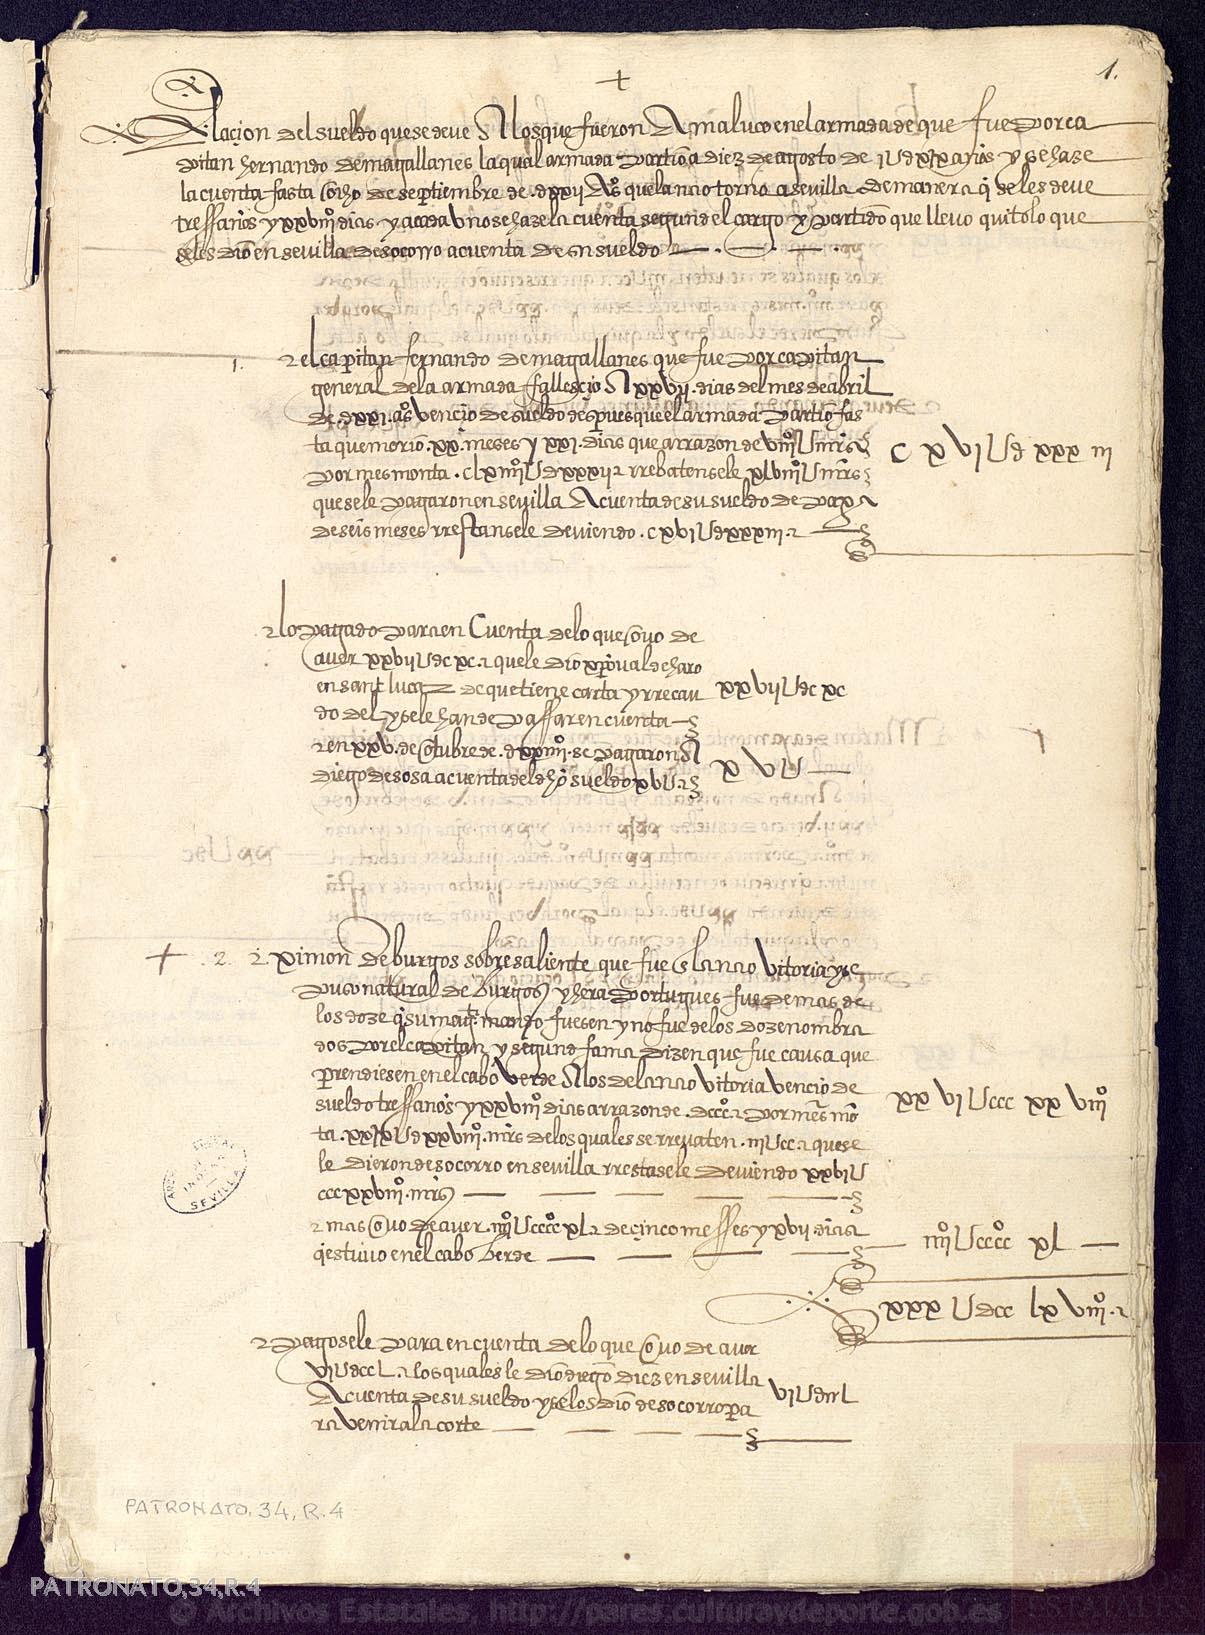 1.
+
Relaçion del sueldo que se deve A los que fueron A maluco en el armada de que fue por ca
pitan hernando de magallanes la qual armada partio a diez de agosto de IUdxix años y se haze
la cuenta fasta ocho de septiembre de dxxii As que la nao torno a sevilla de manera q se les deve
tres años y xxviiiº dias y a cada vno se haze la cuenta segund el cargo y partido que llevo quitolo que
se les dio en sevilla de socorro a cuenta de su sueldo
1. el capitan fernando de magallanes que fue por capitan
general de la armada fallesçio A xxvii dias del mes de abril
de dxxi as vençio de sueldo despues que el armada partio fas
ta que morio xx meses y xxi dias que a rrazon de viiiºU mrs
por mes monta clxiiiiºUdxxxii rrebatensele xlviiiºU mrs
que se le pagaron en sevilla A cuenta de su sueldo de paga
de seis meses rrestansele deviendo cxviUdxxxiii
CxviUdxxxiii
lo pagado para en Cuenta de lo que ovo de
aver xxviiUdcxc que le dio xpoval de haro
en sant lucar de que tiene carta y rrecau
do del y se le han de passar en cuenta
xxviiUdcxc
en xxv de otubre de dxxiiiiº se pagaron A
diego de sosa a cuenta del dho sueldo xvU
xvU
+ 2. ximon de burgos sobresaliente que fue en la nao vitoria y se
puso natural de Burgos y hera portugues fue de mas de
los doze q su mag. mando fuesen y no fue de los doze nombra
dos por el capitan y segund fama dizen que fue causa que
prendiesen en el cabo verde A los de la nao vitoria vencio de
sueldo tres años y xxviiiº dias a rrazon de dccc por mes mo
ta xxixUdxxviiiº mrs de los quales se rrevaten iiiUcc que se
le dieron de socorro en sevilla rrestasele deviendo xxviU
cccxxviiiº mrs
xxviUcccxxviiiº
mas ovo de aver iiiiºUccccxl de çinco messes y xvii dias
q estuvo en el cabo Verde
iiiiºUccccxl
xxxUdcclxviiiº
pagosele para en cuenta de lo que ovo de aver
viUdccl los quales le dio diego diez en sevilla
A cuenta de su sueldo y se los dio de socorro pa
ra venir a la corte
viUdccl
SEVILLA
PATRONATO, 34, R. 4
PATRONATO,34,R.4
© Archivos Estatales, http://pares.culturaydeporte.gob.es
ARCHIVOS
ESTATALES